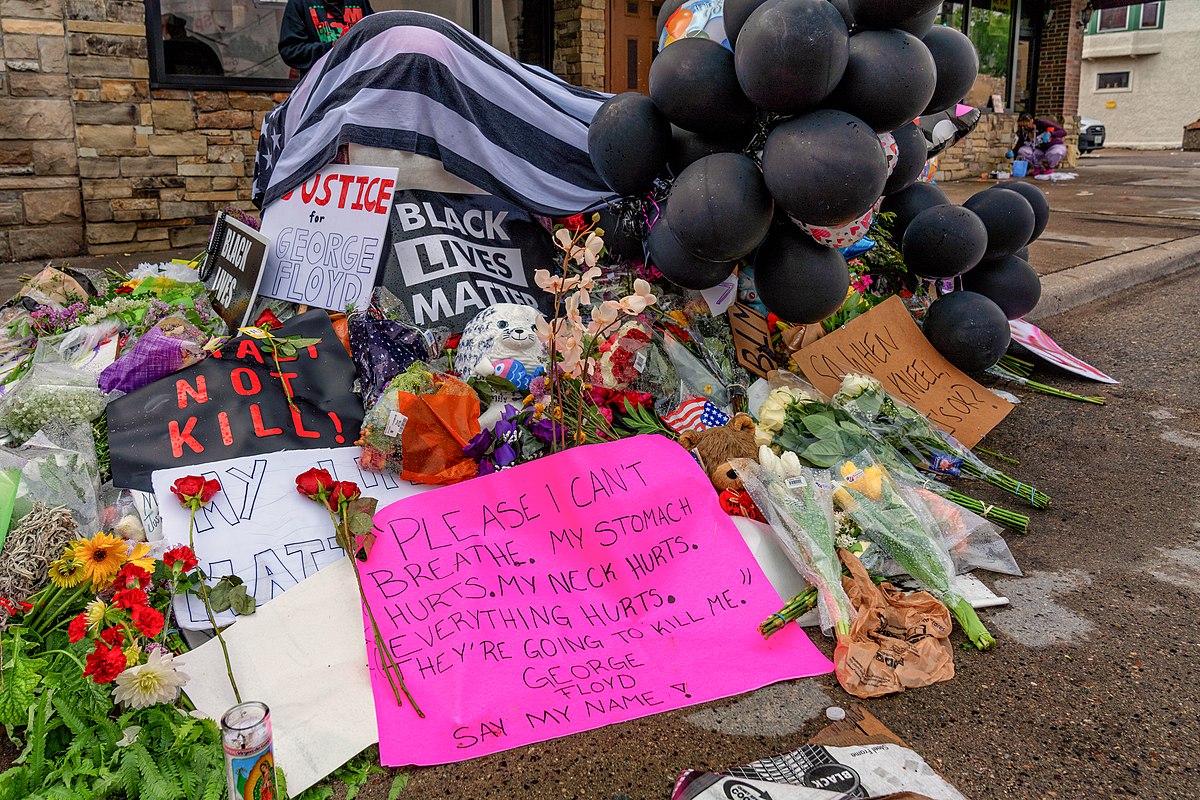 JUSTICE
for
GEORGE
FLOYD
BLACK
LIVES
MATTER
BLACK
LIVES
NOT
KILL!
MY
BLM
SO WHEN
KNEEL
"PLEASE I CAN'T
BREATHE. MY STOMACH
HURTS. MY NECK HURTS.
EVERYTHING HURTS.
THEY'RE GOING TO KILL ME."
GEORGE
FLOYD
SAY MY NAME!
BLACK